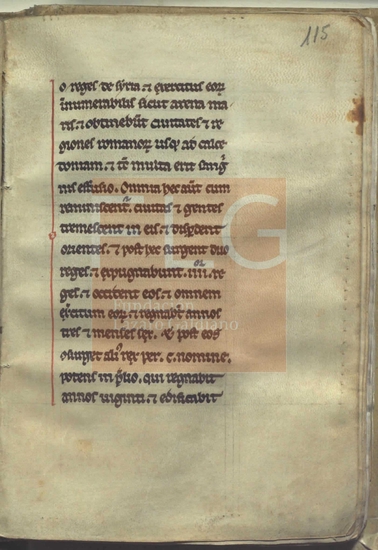 115
o reges de siria et exercitus eorum
innumerabilis sicut arena ma
ris et obtinebunt ciuitates et re
giones romanorum usque ad calce
toniam. et tunc multa erit sangui
nis effusio. Omnia hec autem cum
reminiscentur ciuitas et gentes
tremescent in eis et disperdent
orientes. et post hec surgent duo
reges et expugnabunt .iiiior. re
ges et occident eos et omnem
exercitum eorum et regnabunt annos
tres et menses sex. Et post eos
alius rex per .c. nomine.
potens in prelio. qui regnabit
annos uiginti. et edificabit
Fundación
Lázaro Galdiano